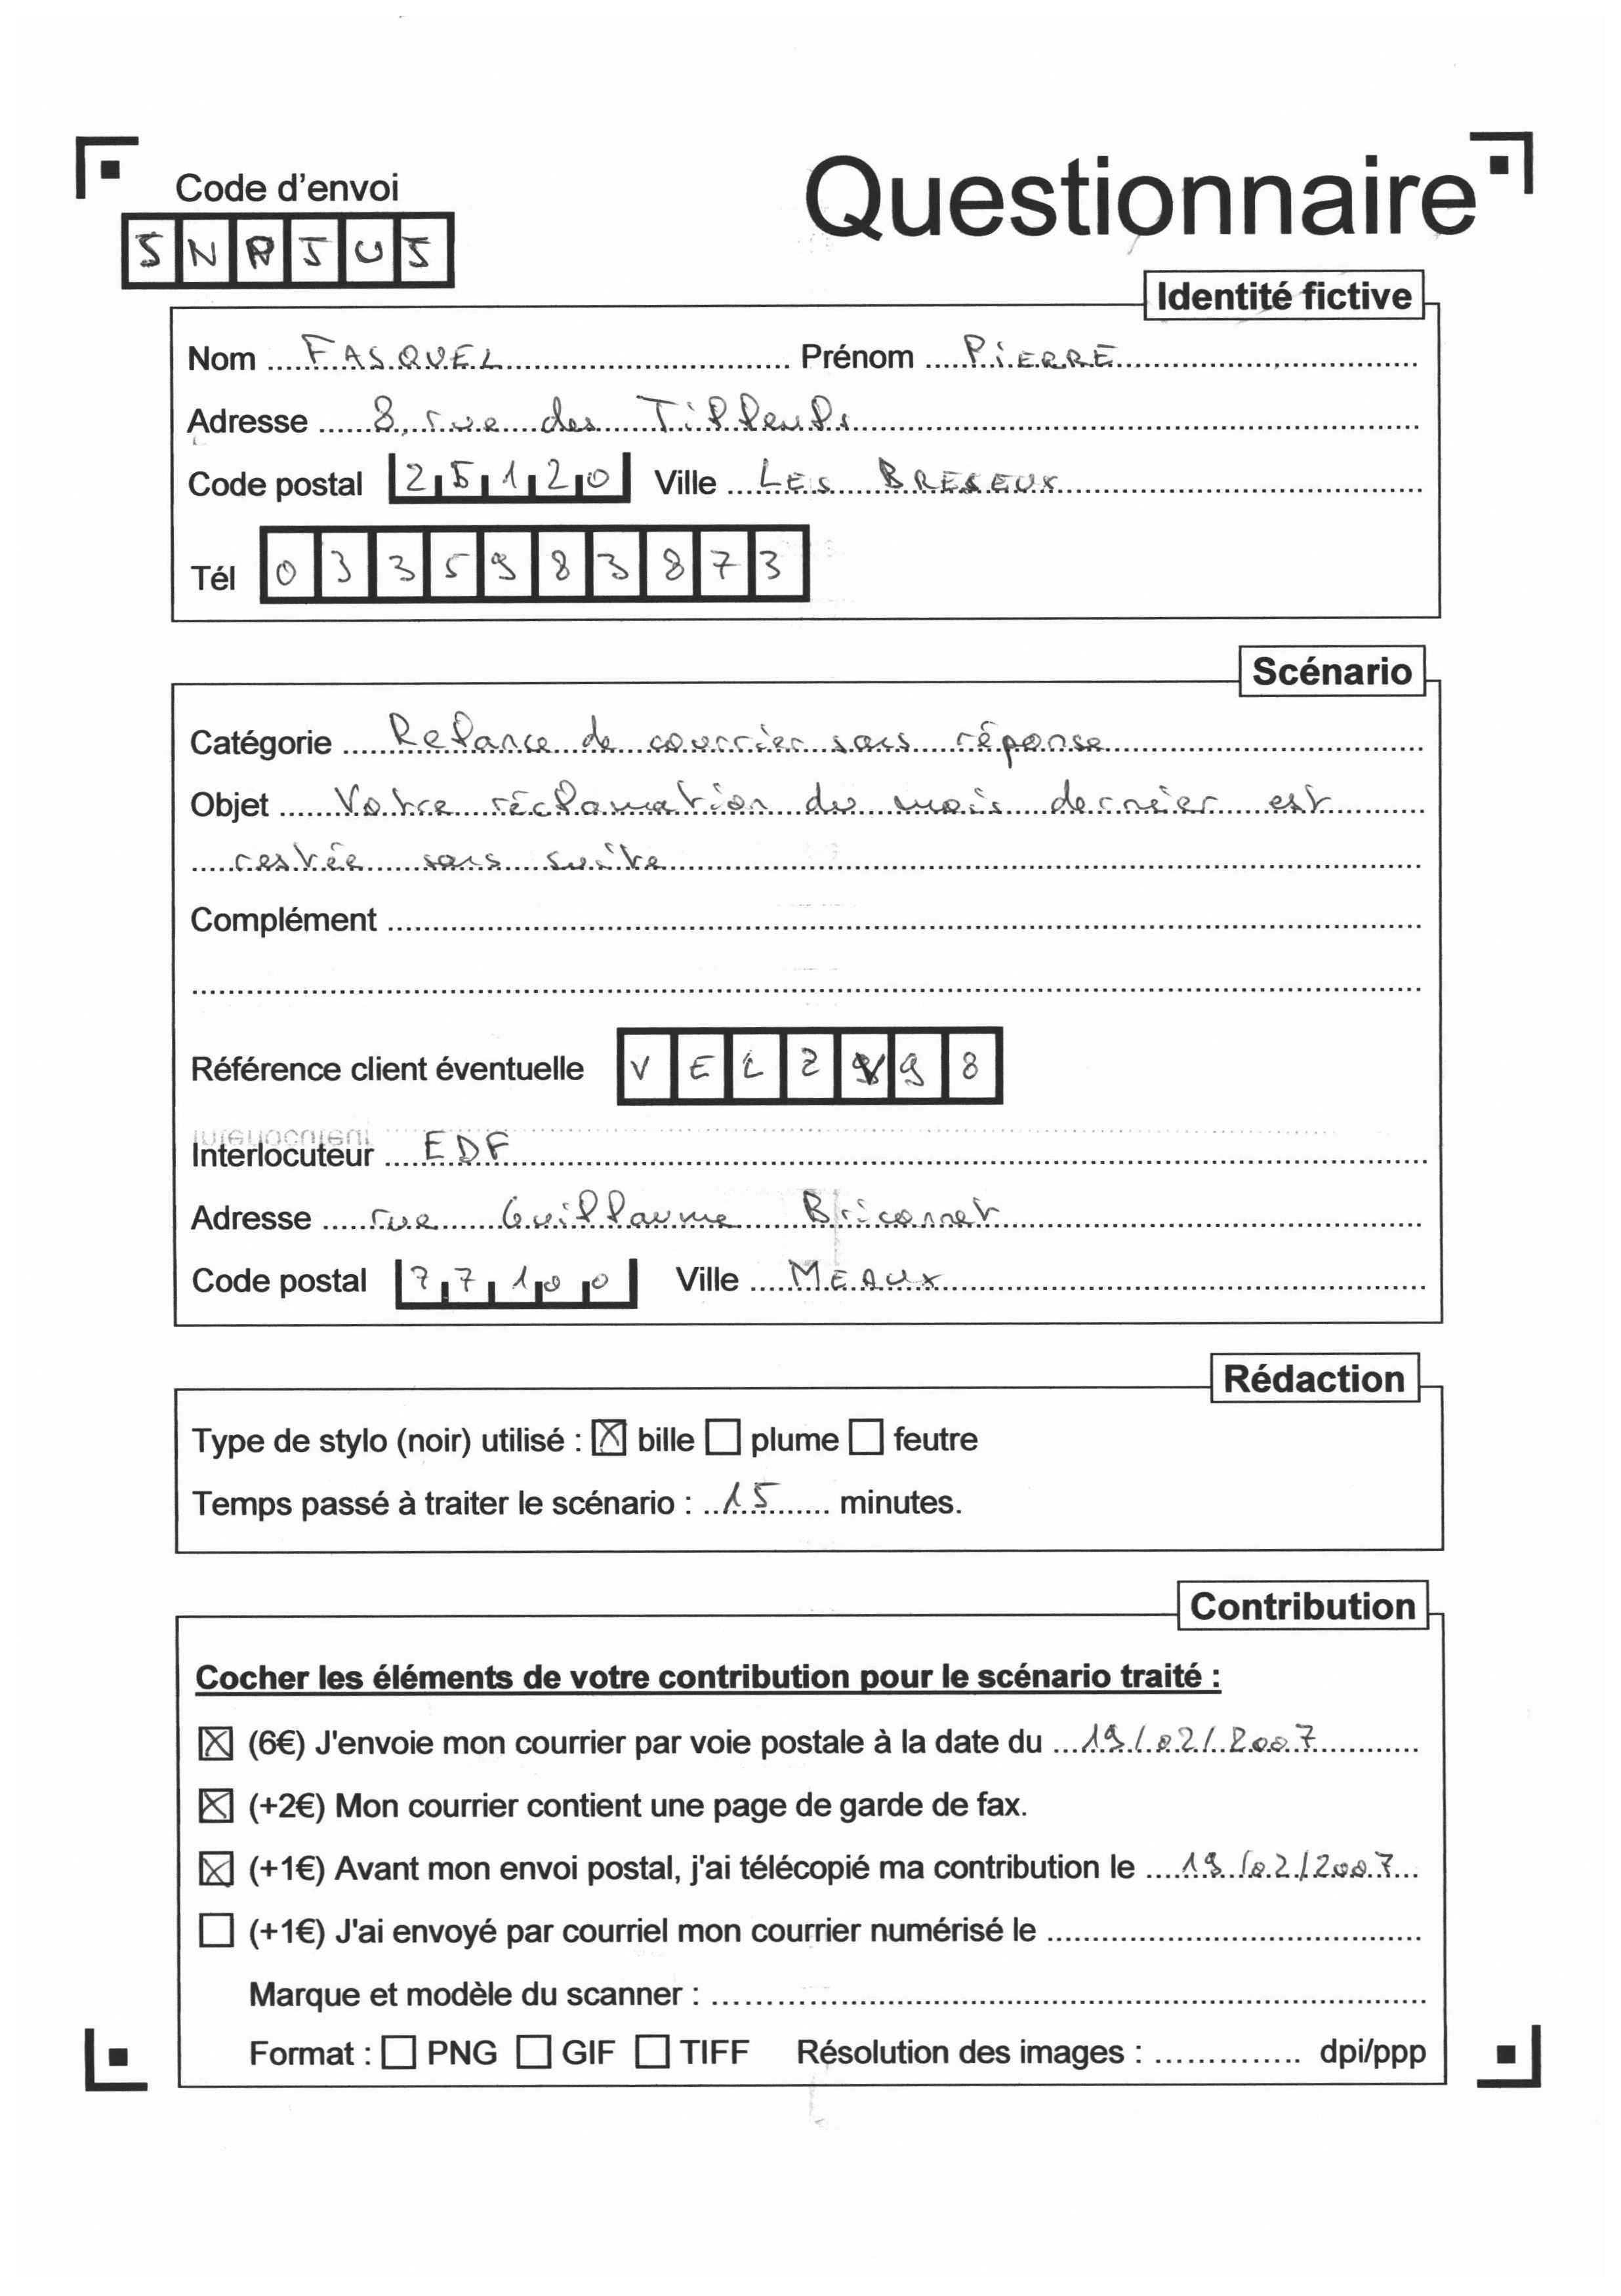 Questionnaire
Code d'envoi
Identité fictive
Nom FASQUEL Prénom PiERRE
Adresse 8, rue des Tilleuls
Code postal 25120 Ville LES BRESEUX
Tél 0335983873
Scénario
Catégorie Relance de courrier sans réponse
Objet Votre réclamation du mois dernier est
restée sans suite
Complément
Référence client éventuelle VEL 98
Interlocuteur EDF
Adresse rue Guillaume Briconnet
Code postal 77100 Ville MEAUX
Rédaction
Type de stylo (noir) utilisé : ☒ bille ☐ plume ☐ feutre
Temps passé à traiter le scénario : 15 minutes.
Contribution
Cocher les éléments de votre contribution pour le scénario traité :
☒ (6€) J'envoie mon courrier par voie postale à la date du 19/02/2007
☒ (+2€) Mon courrier contient une page de garde de fax.
☒ (+1€) Avant mon envoi postal, j'ai télécopié ma contribution le 19/02/2007
☐ (+1€) J'ai envoyé par courriel mon courrier numérisé le
Marque et modèle du scanner :
Format : ☐ PNG ☐ GIF ☐ TIFF Résolution des images : dpi/ppp